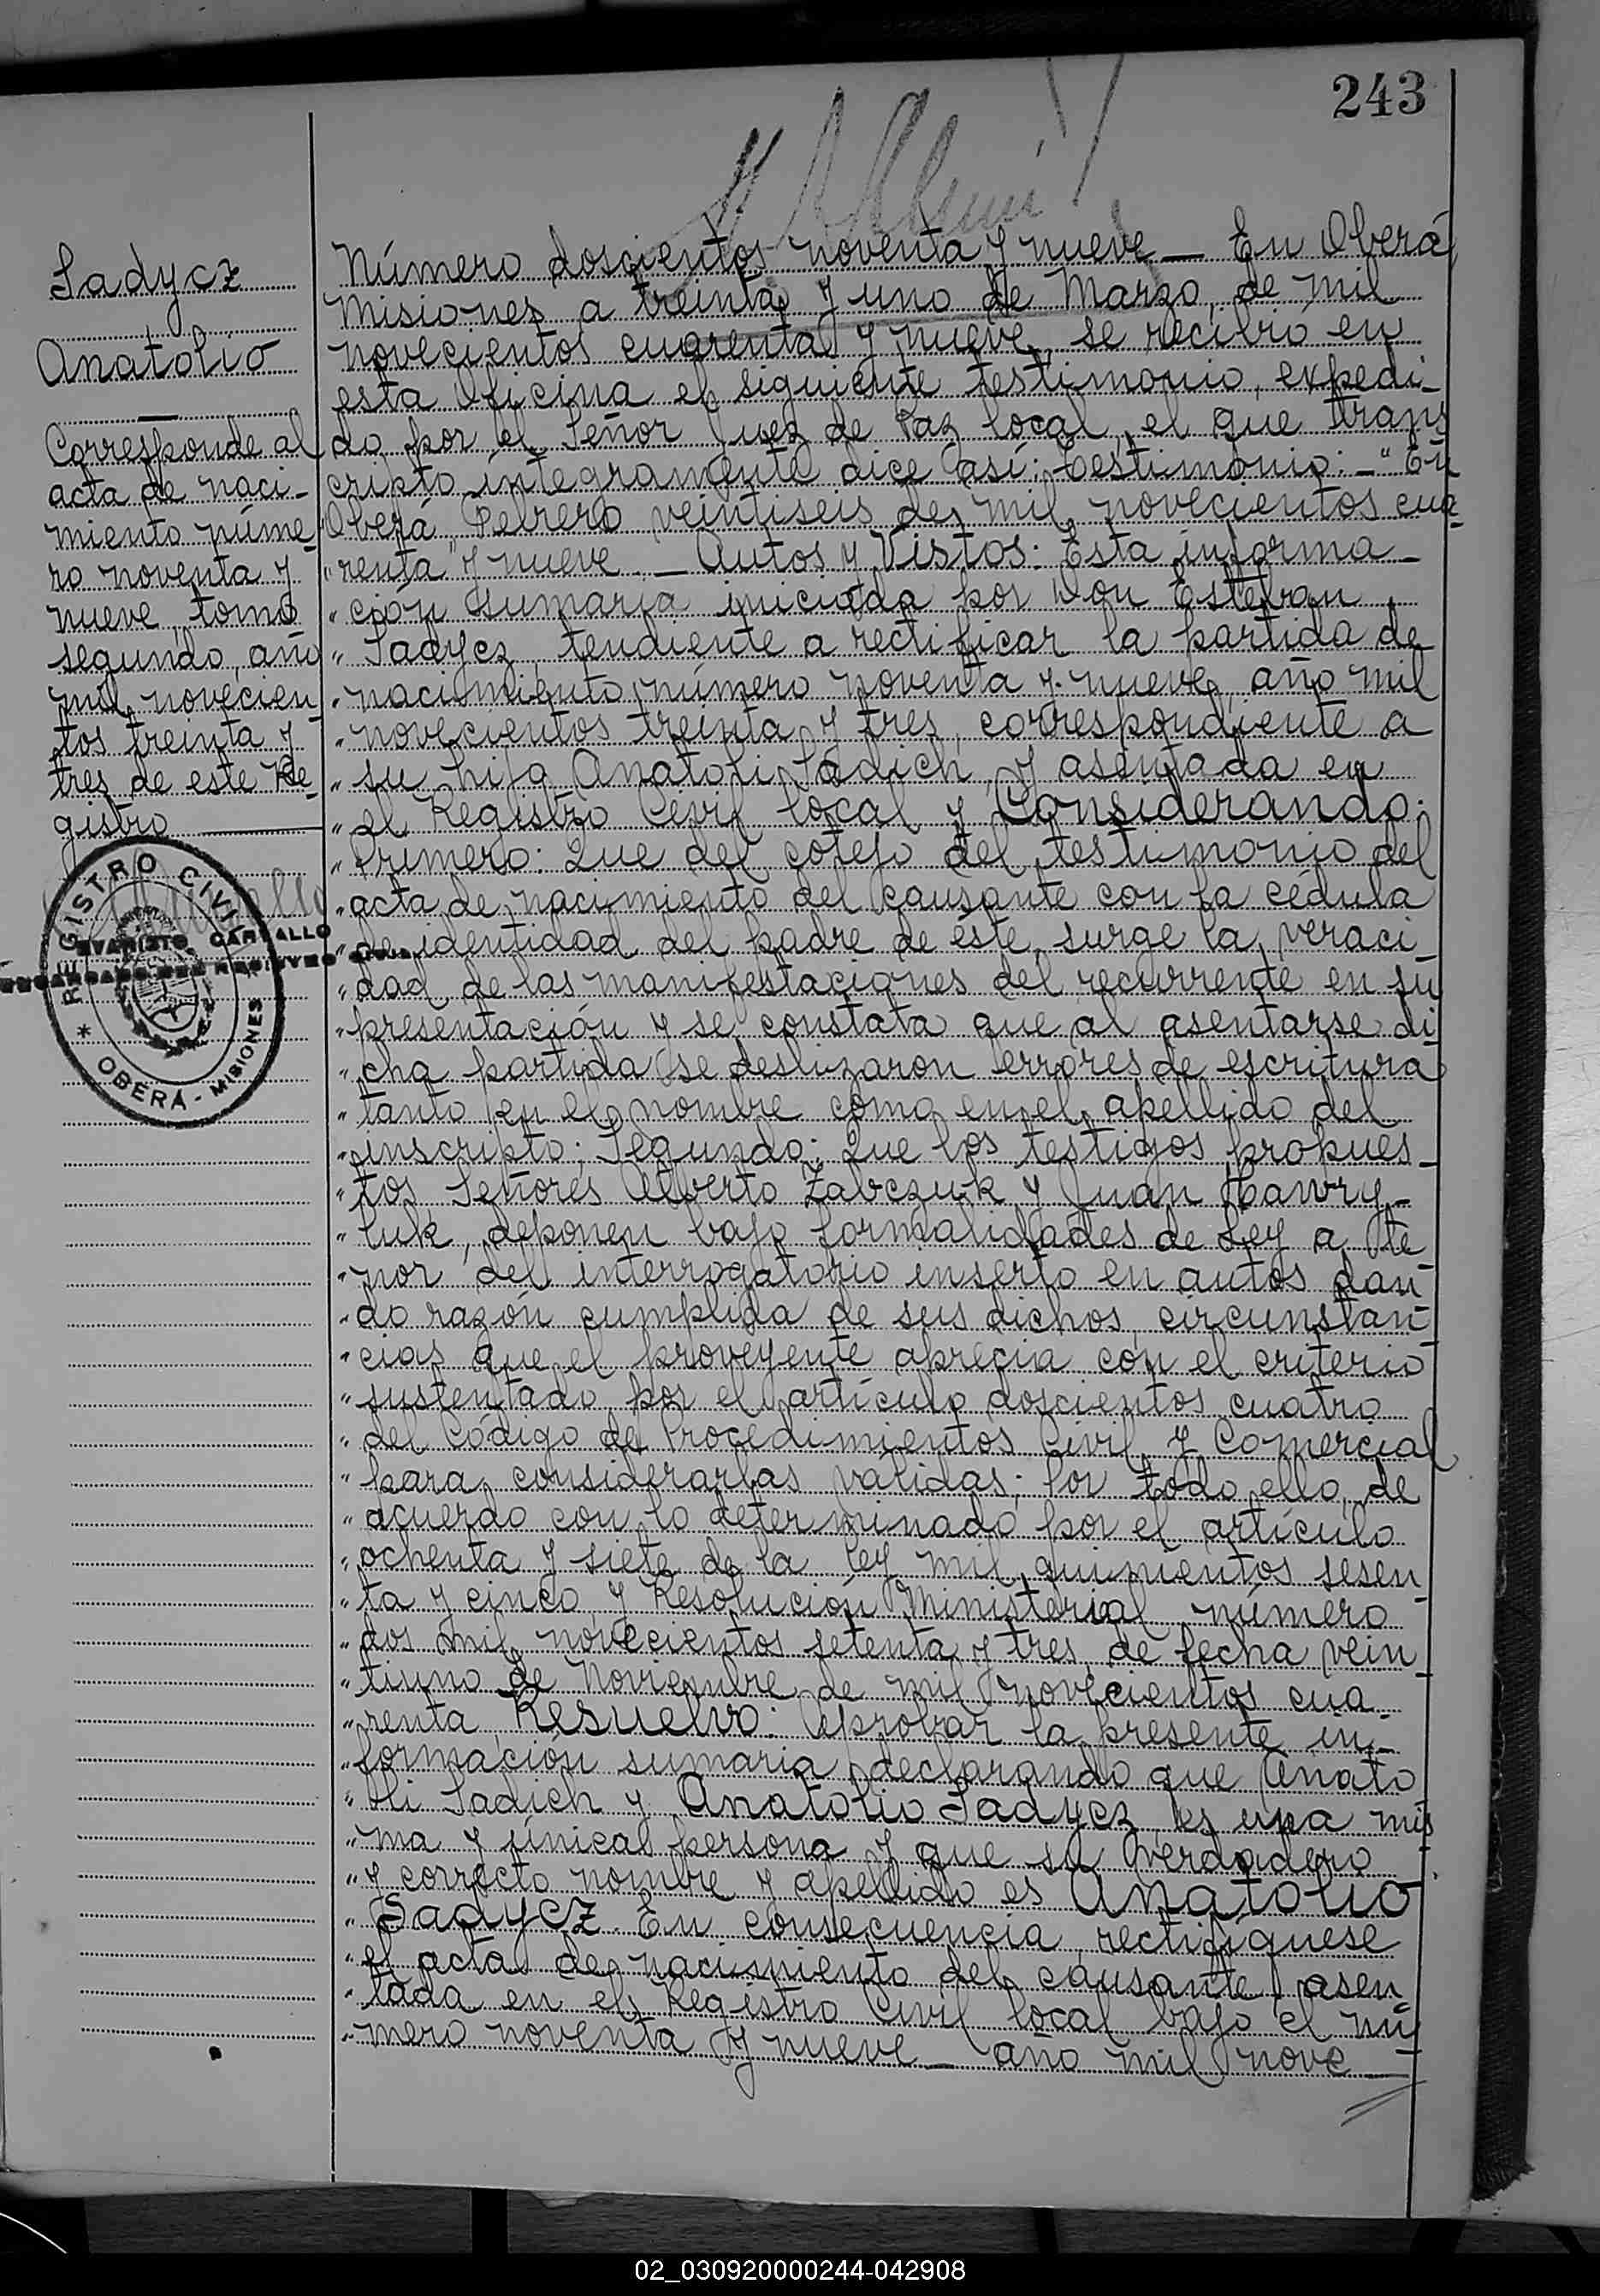 243
Sadycz
Anatolio
Corresponde al
acta de naci-
miento núme-
ro noventa y
nueve, tomo
segundo, año
mil novecien-
tos treinta y
tres de este Re-
gistro
REGISTRO CIVIL
EVARISTO CARBALLO
ENCARGADO DEL REGISTRO CIVIL
* OBERÁ - MISIONES
Número doscientos noventa y nueve — En Oberá,
Misiones a treinta y uno de Marzo, de mil
novecientos cuarenta y nueve, se recibió en
esta Oficina el siguiente testimonio, expedi-
do por el Señor Juez de Paz local, el que trans
cripto íntegramente dice así: Testimonio: - "En
"Oberá, Febrero veintiseis de mil novecientos cua-
"renta y nueve. — Autos y Vistos: Esta informa-
"ción sumaria iniciada por Don Esteban
"Sadycz, tendiente a rectificar la partida de
"nacimiento número noventa y nueve, año mil
"novecientos treinta y tres, correspondiente a
"su hijo Anatoli Sadich, y asentada en
"el Registro Civil local y Considerando:
"Primero: Que del cotejo del testimonio del
"acta de nacimiento del causante con la cédula
"de identidad del padre de éste, surge la veraci
"dad de las manifestaciones del recurrente en su
"presentación y se constata que al asentarse di
"cha partida se deslizaron errores de escritura
"tanto en el nombre como en el apellido del
"inscripto; Segundo: Que los testigos propues-
"tos, Señores Alberto Zabczuk y Juan Hawry-
"luk, deponen bajo formalidades de Ley a te
"nor del interrogatorio inserto en autos dan-
"do razón cumplida de sus dichos, circunstan-
"cias que el proveyente aprecia con el criterio
"sustentado por el artículo doscientos cuatro
"del Código de Procedimientos Civil y Comercial
"para considerarlas válidas; Por todo ello, de
"acuerdo con lo determinado por el artículo
"ochenta y siete de la ley mil quinientos sesen
"ta y cinco, y Resolución Ministerial número
"dos mil novecientos setenta y tres, de fecha vein-
"tiuno de Noviembre de mil novecientos cua-
"renta, Resuelvo: Aprobar la presente in-
"formación sumaria, declarando que Anato
"li Sadich y Anatolio Sadycz, es una mis
"ma y única persona y que su verdadero
"y correcto nombre y apellido es Anatolio
"Sadycz. En consecuencia, rectifíquese
"el acta de nacimiento del causante, asen
"tada en el Registro Civil local bajo el nú-
"mero noventa y nueve — año mil nove-
02_030920000244-042908